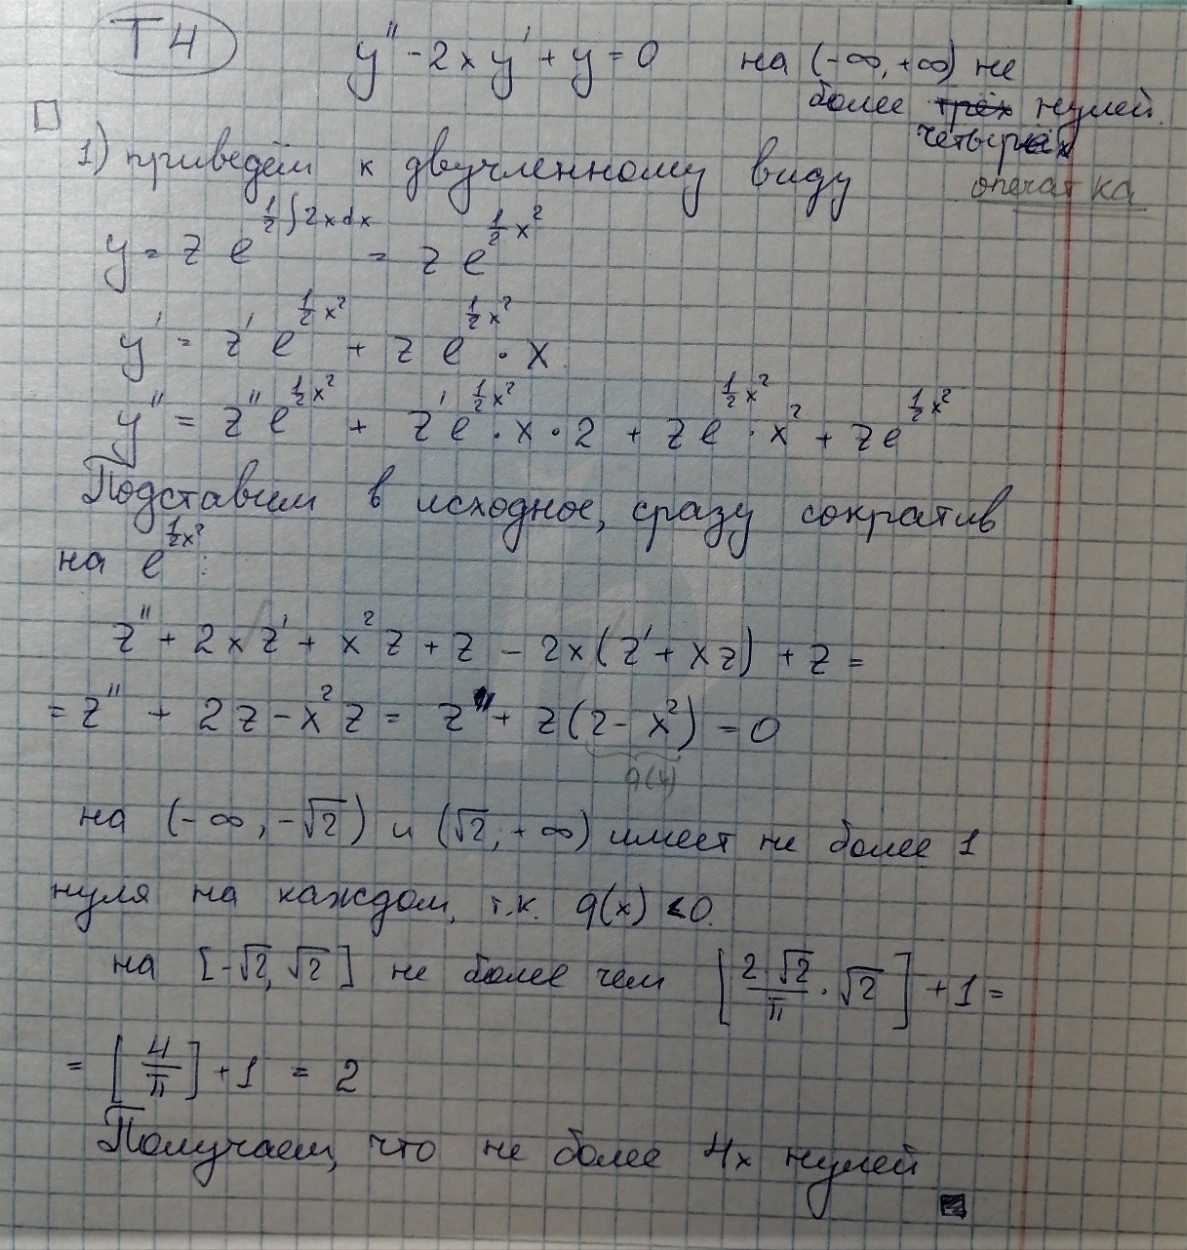 T4
y'' - 2xy' + y = 0 на (-∞, +∞) не
более трёх нулей.
четырёх
опечатка
1) приведём к двучленному виду
y = z e^{½∫2xdx} = z e^{½x²}
y' = z' e^{½x²} + z e^{½x²} · x
y'' = z'' e^{½x²} + z' e^{½x²} · x · 2 + z e^{½x²} · x² + z e^{½x²}
Подставим в исходное, сразу сократив
на e^{½x²}:
z'' + 2xz' + x²z + z - 2x(z' + xz) + z =
= z'' + 2z - x²z = z'' + z(2 - x²) = 0
q(x)
на (-∞, -√2) и (√2, +∞) имеет не более 1
нуля на каждом, т.к. q(x) < 0.
на [-√2, √2] не более чем [2√2/π · √2] + 1 =
= [4/π] + 1 = 2
Получаем, что не более 4х нулей